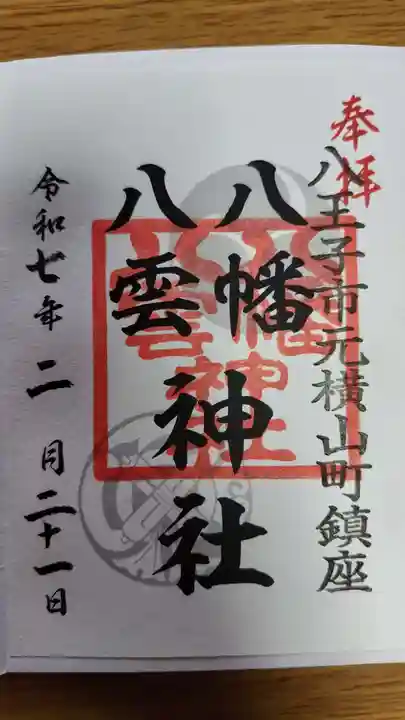 奉拝
八王子市元横山町鎮座
八幡
八雲
神社
令和七年二月二十一日
八幡
八雲
神社